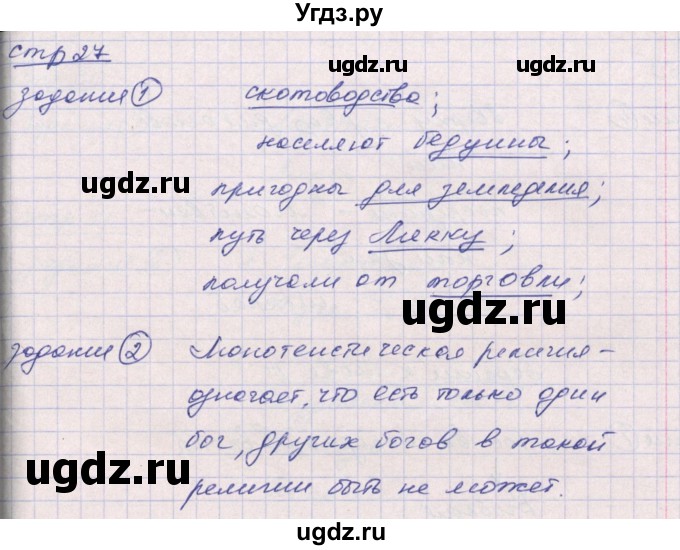 Угдз.ру
стр 27
ugdz.ru
ugdz.ru
задания 1 скотоводства;
населяют бедуины;
ugdz.ru
пригодны для земледелия;
путь через Мекку;
получали от торговли;
ugdz.ru
задание 2 Монотеистическая религия-
означает, что есть только один
бог, других богов в такой
ugdz.ru
ugdz.ru
религии быть не может.
ugdz.ru